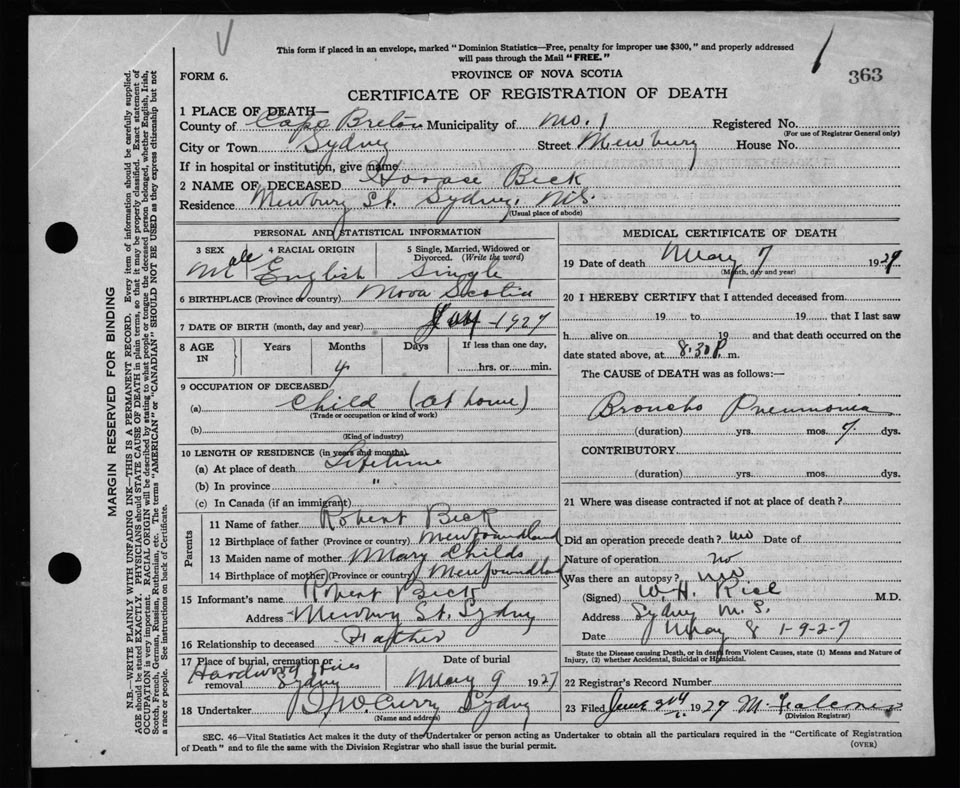 This form if placed in an envelope, marked "Dominion Statistics—Free, penalty for improper use $300," and properly addressed
will pass through the Mail "FREE."
FORM 6.
PROVINCE OF NOVA SCOTIA
363
CERTIFICATE OF REGISTRATION OF DEATH
1 PLACE OF DEATH—
County of Cape Breton Municipality of No. 1 Registered No.
(For use of Registrar General only)
City or Town Sydney Street Newbury House No.
If in hospital or institution, give name
2 NAME OF DECEASED Horase Beck
Residence Newbury St. Sydney, N.S.
(Usual place of abode)
PERSONAL AND STATISTICAL INFORMATION
3 SEX Male
4 RACIAL ORIGIN English
5 Single, Married, Widowed or Divorced. (Write the word) Single
6 BIRTHPLACE (Province or country) Nova Scotia
7 DATE OF BIRTH (month, day and year) 1927
8 AGE IN Years Months Days If less than one day, hrs. or min.
4
9 OCCUPATION OF DECEASED
(a) Child (at home)
(Trade or occupation or kind of work)
(b)
(Kind of industry)
10 LENGTH OF RESIDENCE (in years and months)
(a) At place of death Lifetime
(b) In province "
(c) In Canada (if an immigrant)
Parents
11 Name of father Robert Beck
12 Birthplace of father (Province or country) Newfoundland
13 Maiden name of mother Mary Childs
14 Birthplace of mother (Province or country) Newfoundland
15 Informant's name Robert Beck
Address Newbury St. Sydney
16 Relationship to deceased Father
17 Place of burial, cremation or removal Hardwood Sydney
Date of burial May 9 1927
18 Undertaker Curry Sydney
(Name and address)
MEDICAL CERTIFICATE OF DEATH
19 Date of death May 7 1927
(Month, day and year)
20 I HEREBY CERTIFY that I attended deceased from
19 to 19 , that I last saw
h alive on 19 and that death occurred on the
date stated above, at 8.30 P. m.
The CAUSE of DEATH was as follows:—
Broncho Pneumonia
(duration) yrs. mos. 7 dys.
CONTRIBUTORY
(duration) yrs. mos. dys.
21 Where was disease contracted if not at place of death?
Did an operation precede death? no Date of
Nature of operation no
Was there an autopsy? no
(Signed) W.H. Rice M.D.
Address Sydney N.S.
Date May 8 1-9-2-7
State the Disease causing Death, or in death from Violent Causes, state (1) Means and Nature of
Injury, (2) whether Accidental, Suicidal or Homicidal.
22 Registrar's Record Number
23 Filed June 1927 M. Falconer
(Division Registrar)
SEC. 46—Vital Statistics Act makes it the duty of the Undertaker or person acting as Undertaker to obtain all the particulars required in the "Certificate of Registration
of Death" and to file the same with the Division Registrar who shall issue the burial permit.
(OVER)
MARGIN RESERVED FOR BINDING
N.B.—WRITE PLAINLY WITH UNFADING INK—THIS IS A PERMANENT RECORD. Every item of information should be carefully supplied.
AGE should be stated EXACTLY. PHYSICIANS should STATE CAUSE OF DEATH in plain terms, so that it may be properly classified. Exact statement of
OCCUPATION is very important. RACIAL ORIGIN will be described by stating to what people or tongue the deceased person belonged, whether English, Irish,
Scotch, French, German, Russian, Ruthenian, etc. The terms "AMERICAN" or "CANADIAN" SHOULD NOT BE USED as they express citizenship but not
a race or people. See instructions on back of Certificate.